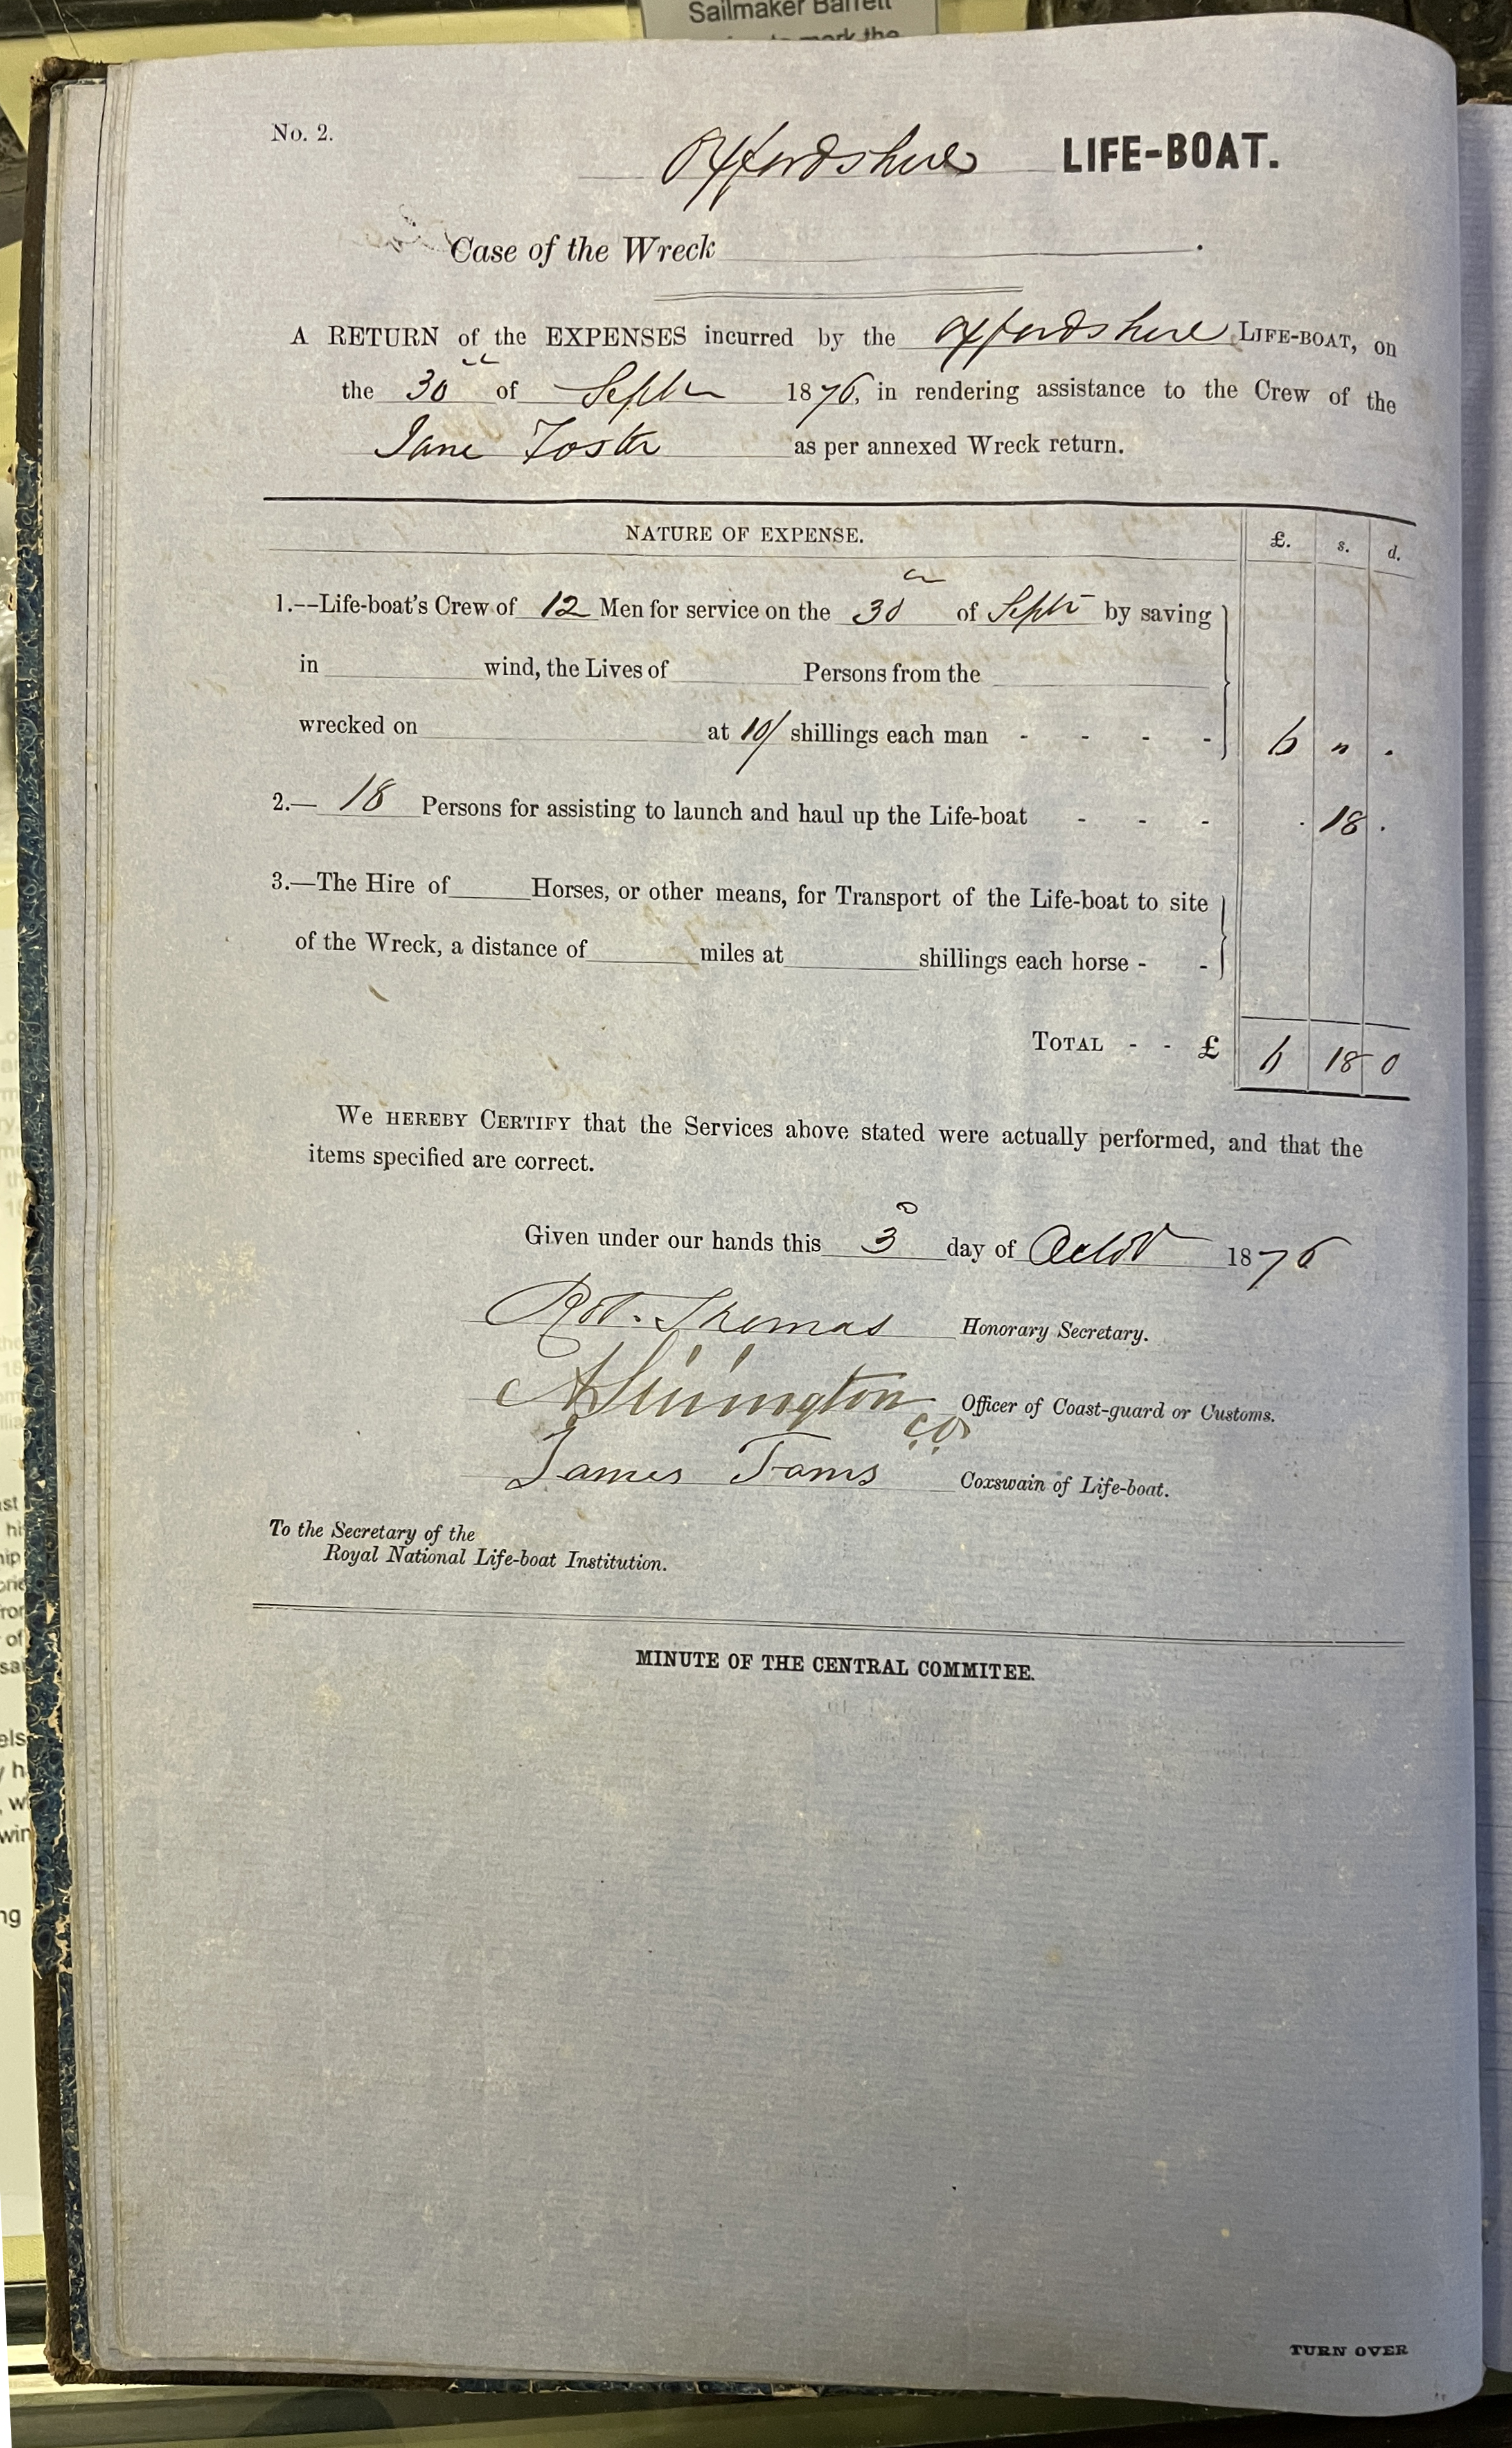 Sailmaker Barrett
No. 2.
Oxfordshire LIFE-BOAT.
Case of the Wreck .
A RETURN of the EXPENSES incurred by the Oxfordshire LIFE-BOAT, on
the 30th of Septr 1876, in rendering assistance to the Crew of the
Jane Foster as per annexed Wreck return.
NATURE OF EXPENSE. £. s. d.
1.--Life-boat's Crew of 12 Men for service on the 30th of Septr by saving
in wind, the Lives of Persons from the
wrecked on at 10/ shillings each man - - - - 6 " .
2.— 18 Persons for assisting to launch and haul up the Life-boat - - - . 18 .
3.—The Hire of Horses, or other means, for Transport of the Life-boat to site
of the Wreck, a distance of miles at shillings each horse - -
TOTAL - - £ 6 18 0
We HEREBY CERTIFY that the Services above stated were actually performed, and that the
items specified are correct.
Given under our hands this 3d day of Octor 1876
Robt. Thomas Honorary Secretary.
Officer of Coast-guard or Customs.
C.O.
James Tams Coxswain of Life-boat.
To the Secretary of the
Royal National Life-boat Institution.
MINUTE OF THE CENTRAL COMMITEE.
TURN OVER